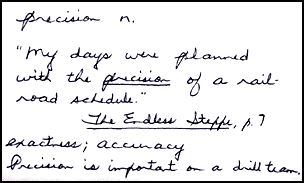 precision n.
"My days were planned
with the precision of a rail-
road schedule."
The Endless Steppe, p. 7
exactness; accuracy
Precision is important on a drill team.